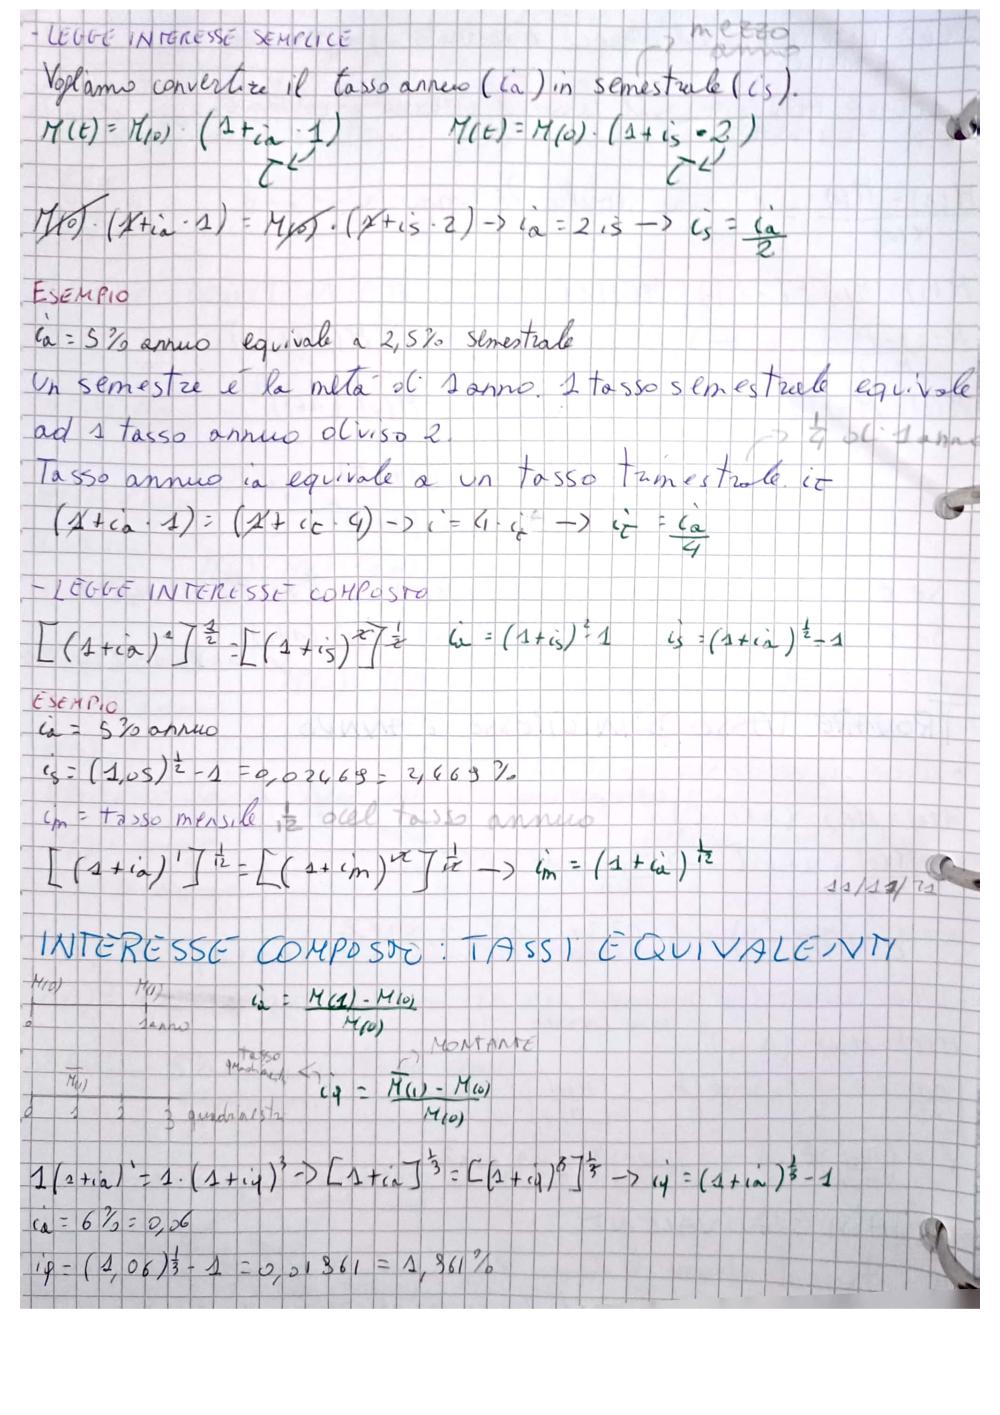 - LEGGE INTERESSE SEMPLICE
→ mezzo anno
Vogliamo convertire il tasso annuo (ia) in semestrale (is).
M(t) = M(0) · (1+ia · 1)    M(t) = M(0) · (1+is · 2)
τ    τ
M(0) · (1+ia · 1) = M(0) · (1+is · 2) → ia = 2 is → is = ia/2
ESEMPIO
ia = 5% annuo equivale a 2,5% semestrale
Un semestre è la metà di 1 anno. 1 tasso semestrale equivale
ad 1 tasso annuo diviso 2.
→ 1/4 di 1 anno
Tasso annuo ia equivale a un tasso trimestrale it
(1+ia · 1) = (1+it · 4) → i = 4 · it → it = ia/4
- LEGGE INTERESSE COMPOSTO
[(1+ia)^1]^1/2 = [(1+is)^2]^1/2    ia = (1+is)^2 - 1    is = (1+ia)^1/2 - 1
ESEMPIO
ia = 5% annuo
is = (1,05)^1/2 - 1 = 0,02469 = 2,469%
im = tasso mensile 1/12 del tasso annuo
[(1+ia)^1]^1/12 = [(1+im)^12]^1/12 → im = (1+ia)^1/12
11/11/21
INTERESSE COMPOSTO: TASSI EQUIVALENTI
M(0)    M(1)    ia = M(1) - M(0) / M(0)
0    1 anno
→ MONTANTE
tasso quadrimestr. ← iq = M̅(1) - M(0) / M(0)
M̅(1)
0    1    2    3 quadrimestri
1(1+ia)^1 = 1 · (1+iq)^3 → [1+ia]^1/3 = [(1+iq)^3]^1/3 → iq = (1+ia)^1/3 - 1
ia = 6% = 0,06
iq = (1,06)^1/3 - 1 = 0,01961 = 1,961%